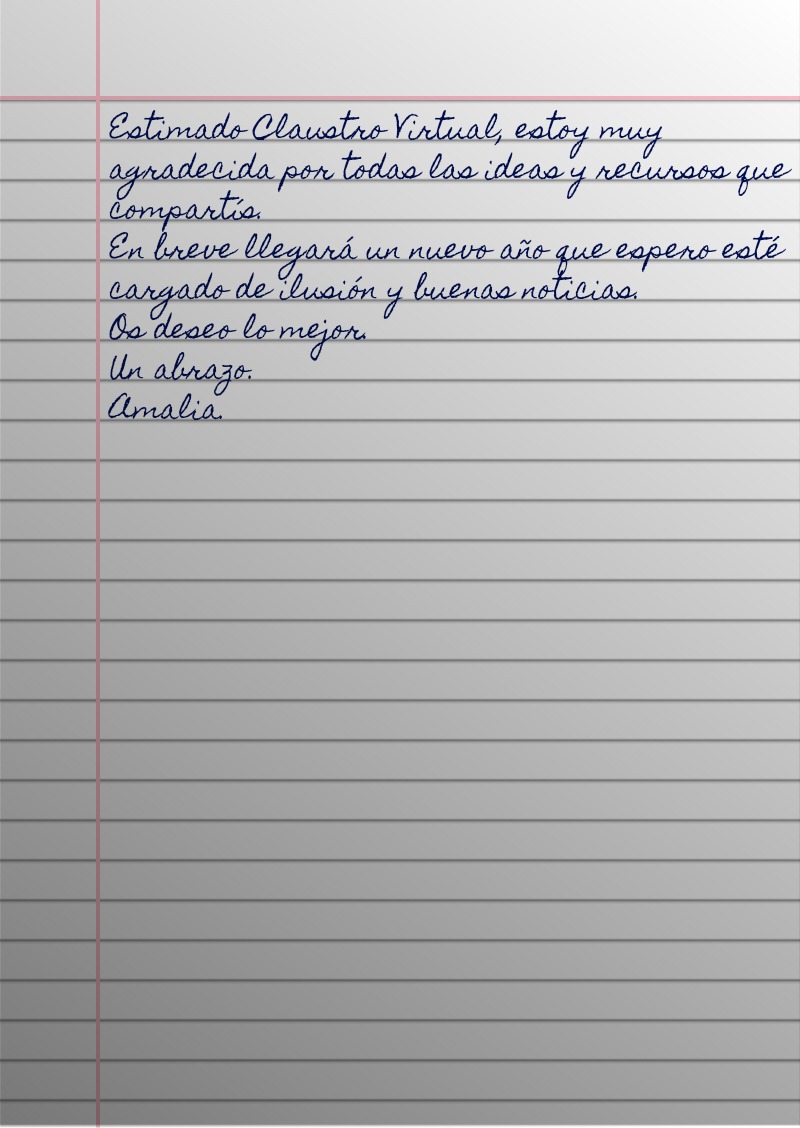 Estimado Claustro Virtual, estoy muy
agradecida por todas las ideas y recursos que
compartís.
En breve llegará un nuevo año que espero esté
cargado de ilusión y buenas noticias.
Os deseo lo mejor.
Un abrazo.
Amalia.